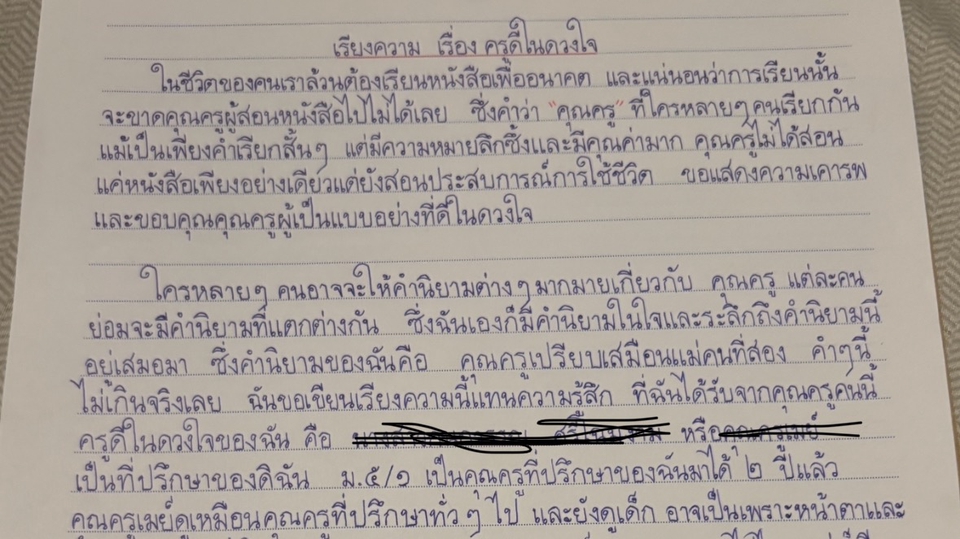 เรียงความ เรื่อง ครูดีในดวงใจ
ในชีวิตของคนเราล้วนต้องเรียนหนังสือเพื่ออนาคต และแน่นอนว่าการเรียนนั้น
จะขาดคุณครูผู้สอนหนังสือไปไม่ได้เลย ซึ่งคำว่า "คุณครู" ที่ใครหลายๆคนเรียกกัน
แม้เป็นเพียงคำเรียกสั้นๆ แต่มีความหมายลึกซึ้งและมีคุณค่ามาก คุณครูไม่ได้สอน
แค่หนังสือเพียงอย่างเดียวแต่ยังสอนประสบการณ์การใช้ชีวิต ขอแสดงความเคารพ
และขอบคุณคุณครูผู้เป็นแบบอย่างที่ดีในดวงใจ
ใครหลายๆ คนอาจจะให้คำนิยามต่างๆมากมายเกี่ยวกับ คุณครู แต่ละคน
ย่อมจะมีคำนิยามที่แตกต่างกัน ซึ่งฉันเองก็มีคำนิยามในใจและระลึกถึงคำนิยามนี้
อยู่เสมอมา ซึ่งคำนิยามของฉันคือ คุณครูเปรียบเสมือนแม่คนที่สอง คำๆนี้
ไม่เกินจริงเลย ฉันขอเขียนเรียงความนี้แทนความรู้สึก ที่ฉันได้รับจากคุณครูคนนี้
ครูดีในดวงใจของฉัน คือ หรือ
เป็นที่ปรึกษาของดิฉัน ม.๕/๑ เป็นคุณครูที่ปรึกษาของฉันมาได้ ๒ ปีแล้ว
คุณครูเมย์ดูเหมือนคุณครูที่ปรึกษาทั่วๆ ไป และยังดูเด็ก อาจเป็นเพราะหน้าตาและ